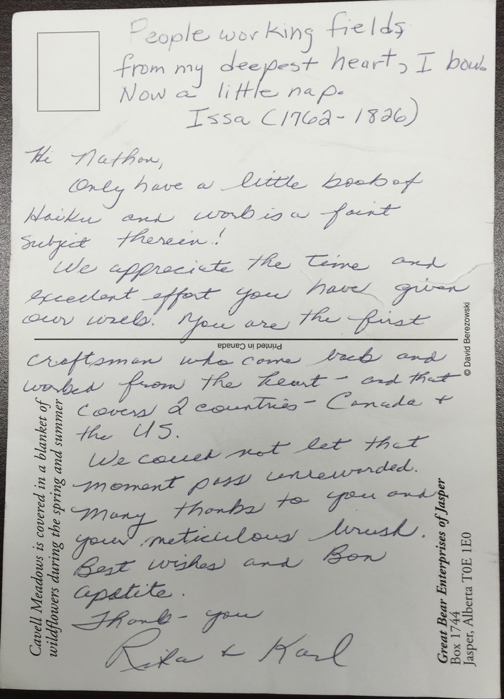 People working fields
from my deepest heart, I bow.
Now a little nap.
Issa (1762-1826)
Hi Nathan,
Only have a little book of
Haiku and work is a faint
subject therein!
We appreciate the time and
excellent effort you have given
our walls. You are the first
craftsman who came back and
worked from the heart - and that
covers 2 countries - Canada +
the US.
We could not let that
moment pass unrewarded.
Many thanks to you and
your meticulous brush.
Best wishes and Bon
apetite.
Thank-you
Rita & Karl
Printed in Canada
© David Berezowski
Cavell Meadows is covered in a blanket of
wildflowers during the spring and summer.
Great Bear Enterprises of Jasper
Box 1744
Jasper, Alberta T0E 1E0